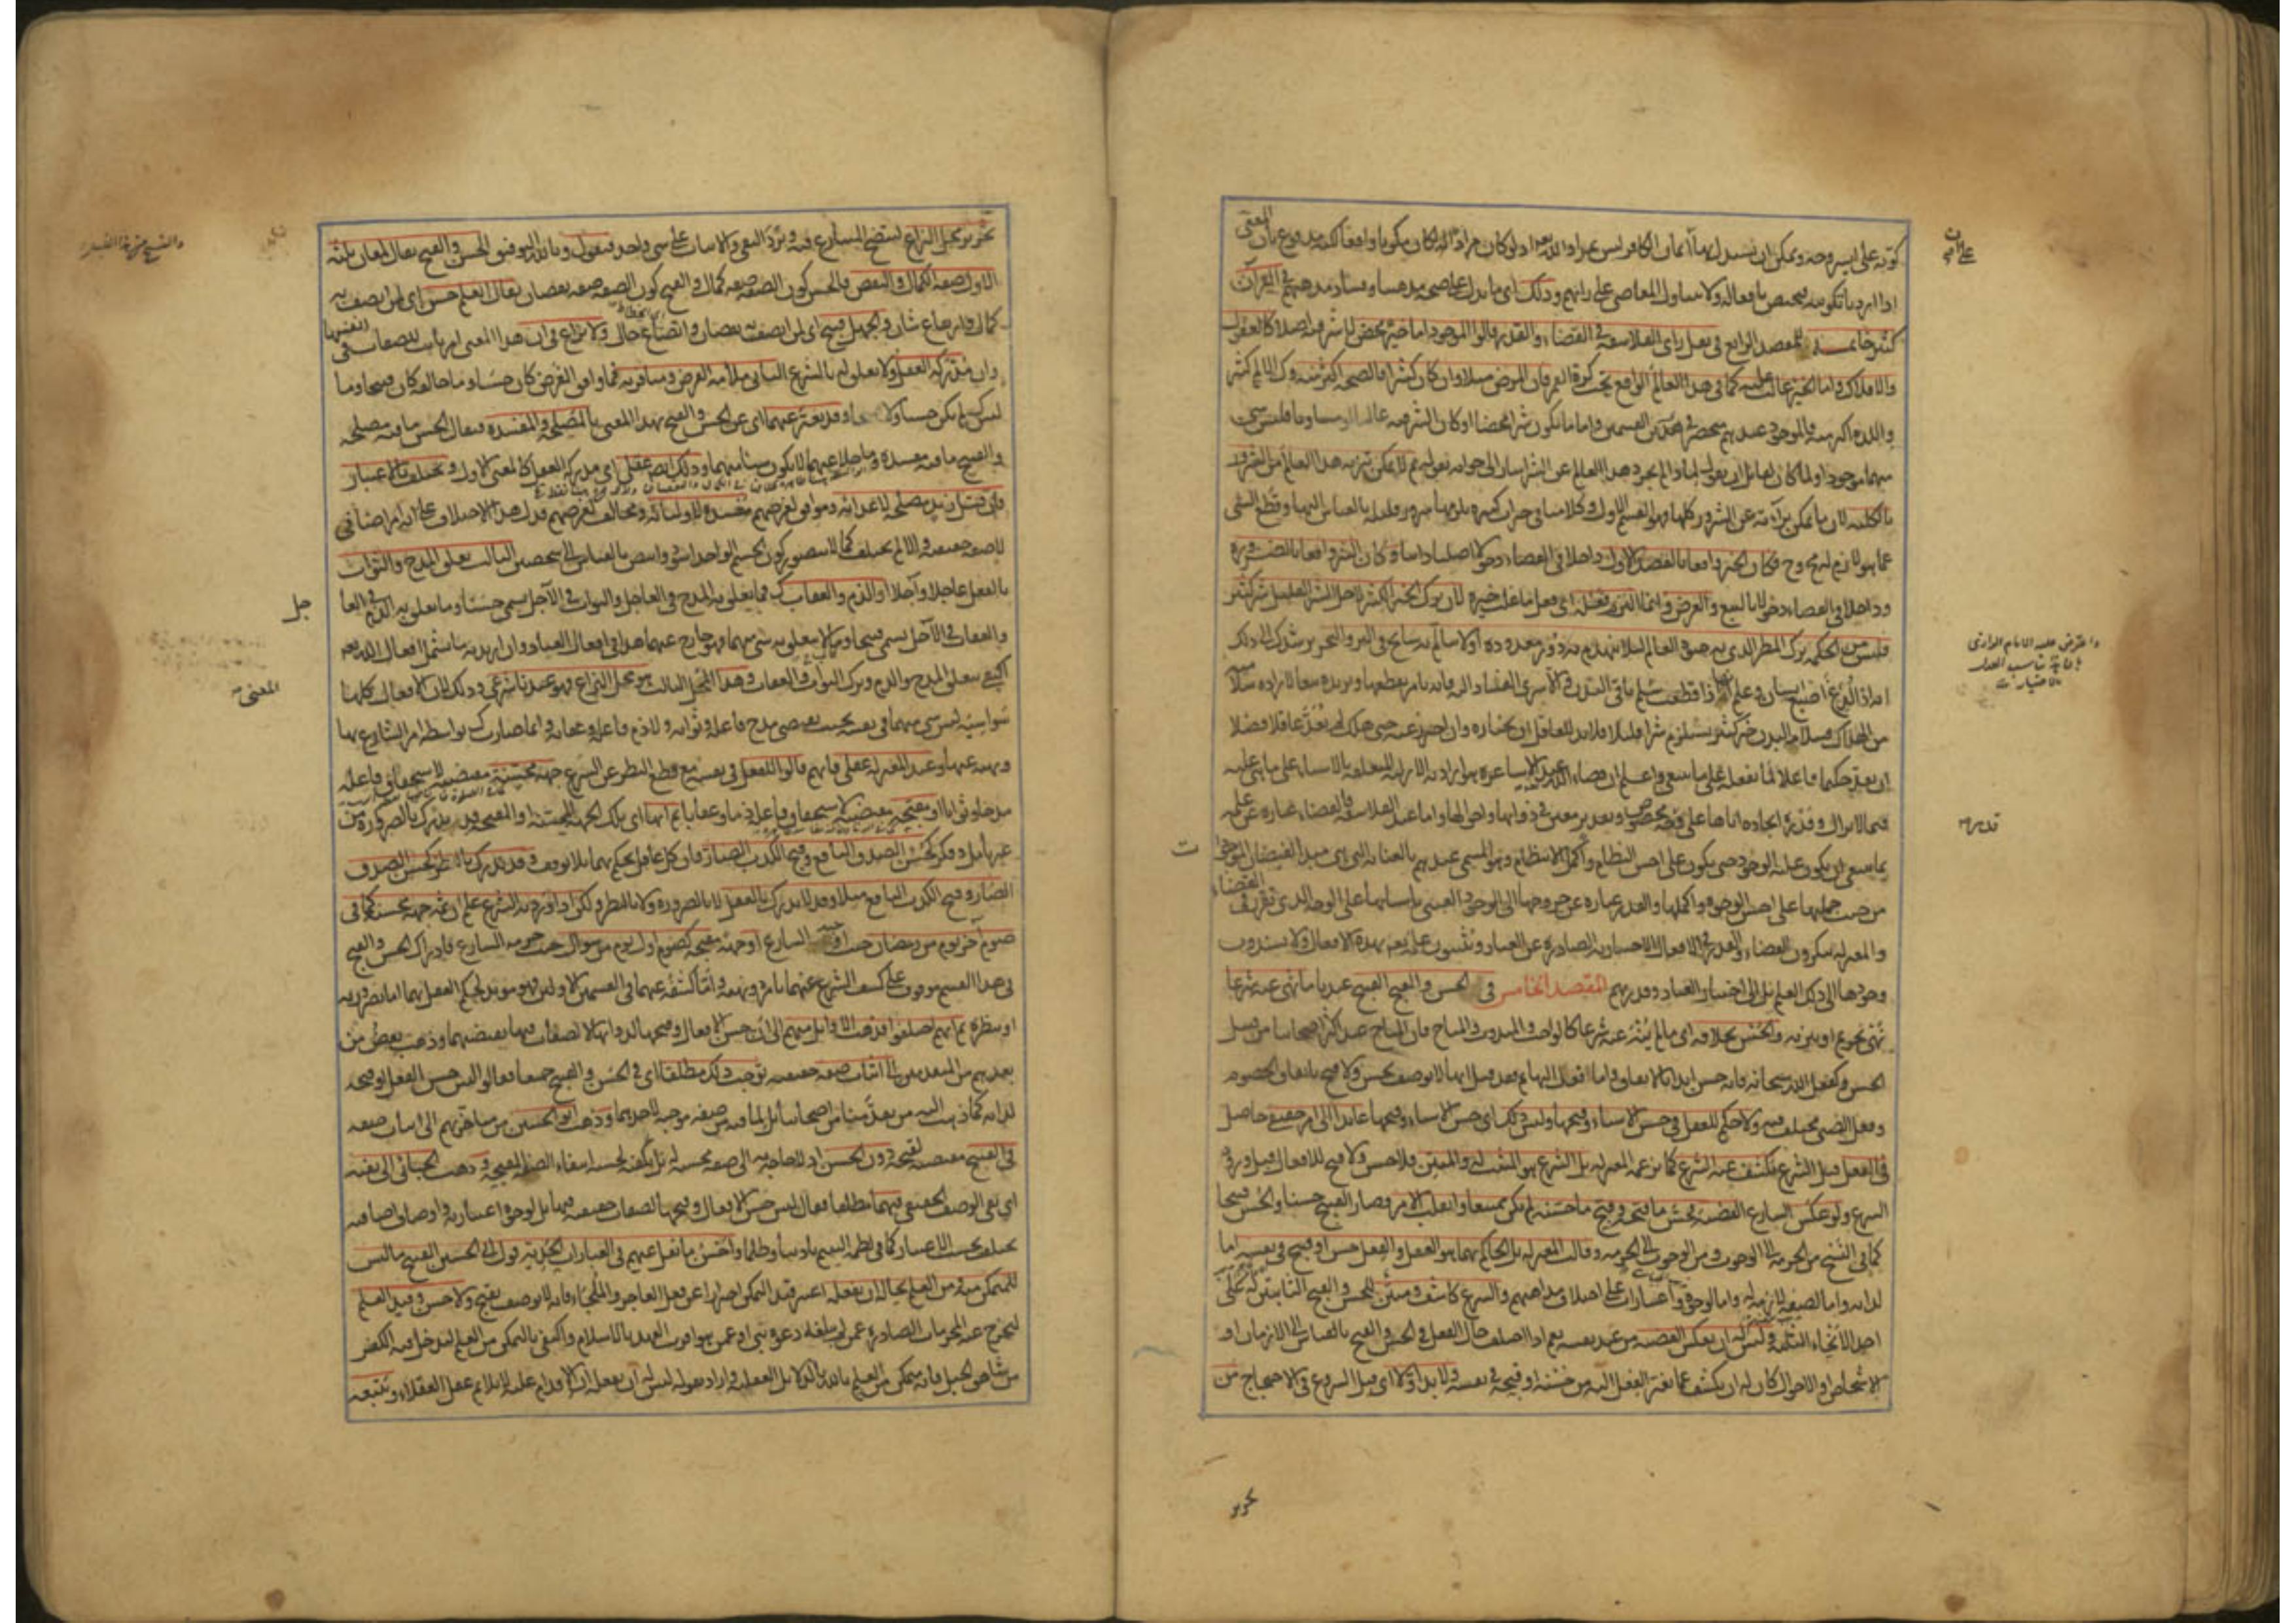 كونه على ايسر وجه ويمكن ان يستدل بها
اذا اريد بالتكوينه فيختص بافعاله ولا يتناول المعاصى على رايهم وذلك اى ما يدل على صحة مذهبنا وفساد مذهبهم فى القرآن
كثير خاتمة للمقصد الرابع فى نقل راى الفلاسفة فى القضاء والقدر قالوا الموجود اما خير محض لا شر فيه اصلا كالعقول
والافلاك واما الخير غالب عليه كما فى هذا العالم الواقع تحت كرة القمر فان المرض مثلا وان كان كثيرا فالصحة اكثر منه وكذلك الالم كثير
واللذة اكثر منه فالموجود عندهم منحصر فى هذين القسمين واما ما يكون شرا محضا او كان الشر فيه غالبا او مساويا فليس شئ
منهما موجودا ولما كان لقائل ان يقول لماذا لم يجرد هذا العالم عن الشر اشار الى جوابه بقوله ثم لا يمكن تنزيه هذا العالم من الشرور
بالكلية لان ما يمكن براءته عن الشرور كلها فهو القسم الاول وكلامنا فى خيرات كثيرة يلزمها شرور قليلة بالقياس اليها وقطع الشئ
عما هو لازم له محال وح فكان الخير واقعا بالقصد الاول داخلا فى القضاء دخولا اصليا ذاتيا وكان الشر واقعا بالضرورة
وداخلا فى القضاء دخولا بالتبع والعرض وانما التزم فعله اى فعل ما غلب خيره لان ترك الخير الكثير لاجل الشر القليل شر كثير
فليس من الحكمة ترك المطر الذى به حيوة العالم لئلا ينهدم به دور معدودة او لا يتألم به سابح فى البر والبحر يرشدك الى ذلك
انه اذا لدغ اصبع انسان وعلم انها اذا قطعت سلم باقى البدن
من الهلاك فسلامة البدن خير كثير يستلزم شرا قليلا فلا بد للعاقل ان يختاره وان احترز عنه حتى هلك لم يعد عاقلا فضلا
ان يعد حكيما فاعلا لما يفعله على ما ينبغى واعلم ان قضاء الله عند الاشاعرة هو ارادته الازلية المتعلقة بالاشياء على ما هى عليه
فيما لا يزال وقدره ايجاده اياها على قدر مخصوص وتقدير معين فى ذواتها واحوالها واما عند الفلاسفة فالقضاء عبارة عن علمه
بما ينبغى ان يكون عليه الوجود حتى يكون على احسن النظام واكمل الانتظام وهو المسمى عندهم بالعناية التى هى مبدأ لفيضان الموجودات
من حيث جملتها على احسن الوجوه واكملها والقدر عبارة عن خروجها الى الوجود العينى باسبابها على الوجه الذى تقرر فى القضاء
والمعتزلة ينكرون القضاء والقدر فى الافعال الاختيارية الصادرة عن العباد ويثبتون علمه تعه بهذه الافعال ولا يسندون
وجودها الى ذلك العلم بل الى اختيار العباد وقدرتهم المقصد الخامس فى الحسن والقبح القبيح عندنا ما نهى عنه شرعا
نهى تحريم او تنزيه والحسن بخلافه اى ما لم ينه عنه شرعا كالواجب والمندوب والمباح فان المباح عند اكثر اصحابنا من قبيل
الحسن وكفعل الله سبحانه فانه حسن ابدا بالاتفاق واما افعال البهائم فقد قيل انها لا توصف بحسن ولا قبح باتفاق الخصوم
وفعل الصبى مختلف فيه ولا حكم للعقل فى حسن الاشياء وقبحها وليس ذلك اى حسن الاشياء وقبحها عائدا الى امر حقيقى حاصل
فى الفعل قبل الشرع يكشف عنه الشرع كما تزعمه المعتزلة بل الشرع هو المثبت له والمبين فلا حسن ولا قبح للافعال قبل ورود
الشرع ولو عكس الشارع القضية فحسن ما قبحه وقبح ما حسنه لم يكن ممتنعا وانقلب الامر فصار القبيح حسنا والحسن قبيحا
كما فى النسخ من الحرمة الى الوجوب ومن الوجوب الى الحرمة وقالت المعتزلة بل الحاكم بهما هو العقل والفعل حسن او قبيح فى نفسه اما
لذاته واما لصفة لازمة له واما لوجوه واعتبارات على اختلاف مذاهبهم والشرع كاشف ومبين للحسن والقبح الثابتين له على
احد الانحاء الثلثة وليس له ان يعكس القضية من عند نفسه نعم اذا اختلف حال الفعل فى الحسن والقبح بالقياس الى الازمان او
الاشخاص او الاحوال كان له ان يكشف عما تغير الفعل اليه من حسنه او قبحه فى نفسه ولا بد اولا اى قبل الشروع فى الاحتجاج من
تحرير
تحرير محل النزاع ليتضح المتنازع فيه ويرد النفى والاثبات على شئ واحد فنقول وبالله التوفيق الحسن والقبح يقال لمعان ثلثة
الاول صفة الكمال والنقص فالحسن كون الصفة صفة كمال والقبح كون الصفة صفة نقصان يقال العلم حسن اى لمن اتصف به
كمال وارتفاع شان والجهل قبيح اى لمن اتصف به نقصان واتضاع حال ولا نزاع فى ان هذا المعنى امر ثابت للصفات فى انفسها
وان مدركه العقل ولا تعلق له بالشرع الثانى ملائمة الغرض ومنافرته فما وافق الغرض كان حسنا وما خالفه كان قبيحا وما
ليس كذلك لم يكن حسنا ولا قبيحا وقد يعبر عنهما اى عن الحسن والقبح بهذا المعنى بالمصلحة والمفسدة فيقال الحسن ما فيه مصلحة
والقبيح ما فيه مفسدة وما خلا عنهما لا يكون شيئا منهما وذلك ايضا عقلى اى مدركه العقل كالمعنى الاول ويختلف بالاعتبار
فان قتل زيد مصلحة لاعدائه وموافق لغرضهم مفسدة لاوليائه ومخالف لغرضهم فدل هذا الاختلاف على انه امر اضافى
لا صفة حقيقية والا لم يختلف كما لا يتصور كون الجسم الواحد اسود وابيض بالقياس الى شخصين الثالث تعلق المدح والثواب
بالفعل عاجلا وآجلا او الذم والعقاب كذلك فما تعلق به المدح فى العاجل والثواب فى الآجل يسمى حسنا وما تعلق به الذم فى العا
جل
والعقاب فى الآجل يسمى قبيحا وما لا يتعلق به شئ منهما فهو خارج عنهما هذا فى افعال العباد وان اريد به ما يشمل افعال الله تعه
اكتفى بتعلق المدح والذم وترك الثواب والعقاب وهذا المعنى الثالث هو محل النزاع فهو عندنا شرعى وذلك لان الافعال كلها
سواسية ليس شئ منها فى نفسه بحيث يقتضى مدح فاعله وثوابه ولا ذم فاعله وعقابه وانما صارت كذلك بواسطة امر الشارع بها
ونهيه عنها وعند المعتزلة عقلى فانهم قالوا للفعل فى نفسه مع قطع النظر عن الشرع جهة محسنة مقتضية لاستحقاق فاعله
مدحا وثوابا او مقبحة مقتضية لاستحقاق فاعله ذما وعقابا ثم انها اى تلك الجهة المحسنة او المقبحة قد تدرك بالضرورة من
غير تأمل وفكر كحسن الصدق النافع وقبح الكذب الضار فان كل عاقل يحكم بهما بلا توقف وقد تدرك بالنظر كحسن الصدق
الضار وقبح الكذب النافع مثلا وقد لا تدرك بالعقل لا بالضرورة ولا بالنظر ولكن اذا ورد به الشرع علم ان ثمه جهة محسنة كما فى
صوم آخر يوم من رمضان حيث اوجبه الشارع او جهة مقبحة كصوم اول يوم من شوال حيث حرمه الشارع فادراك الحسن والقبح
فى هذا القسم موقوف على كشف الشرع عنهما بامره ونهيه واما كشفه عنهما فى القسمين الاولين فهو مؤيد لحكم العقل بهما اما بضرورته
او بنظره ثم انهم اختلفوا فذهب الاوائل منهم الى ان حسن الافعال وقبحها لذواتها لا لصفات فيها تقتضيهما وذهب بعض من
بعدهم من المتقدمين الى اثبات صفة حقيقية توجب ذلك مطلقا اى فى الحسن والقبح جميعا فقالوا ليس حسن الفعل او قبحه
لذاته كما ذهب اليه من تقدمنا من اصحابنا بل لما فيه من صفة موجبة لاحدهما وذهب ابو الحسين من متاخريهم الى اثبات صفة
فى القبيح مقتضية لقبحه دون الحسن اذ لا حاجة به الى صفة محسنة له بل يكفيه لحسنه انتفاء الصفة المقبحة وذهب الجبائى الى نفيه
اى نفى الوصف الحقيقى فيهما مطلقا فقال ليس حسن الافعال وقبحها لصفات حقيقية فيها بل لوجوه اعتبارية واوصاف اضافية
تختلف بحسب الاعتبار كما فى لطمة اليتيم تاديبا وظلما واحسن ما نقل عنهم فى العبارات الحدية قول ابى الحسين القبيح ما ليس
للمتمكن منه ومن العلم بحاله ان يفعله اعتبر قيد التمكن احترازا عن فعل العاجز والملجأ فانه لا يوصف بقبح ولا حسن وقيد العلم
ليخرج عنه المحرمات الصادرة عمن لم يبلغه دعوة نبى او عمن هو قريب العهد بالاسلام واكتفى بالتمكن من العلم ليدخل فيه الكفر
من شاهق الجبل فانه متمكن من العلم بالله بالدلائل العقلية واراد بقوله ليس له ان يفعله ان الاقدام عليه لا يلائم عقل العقلاء ويتبعه